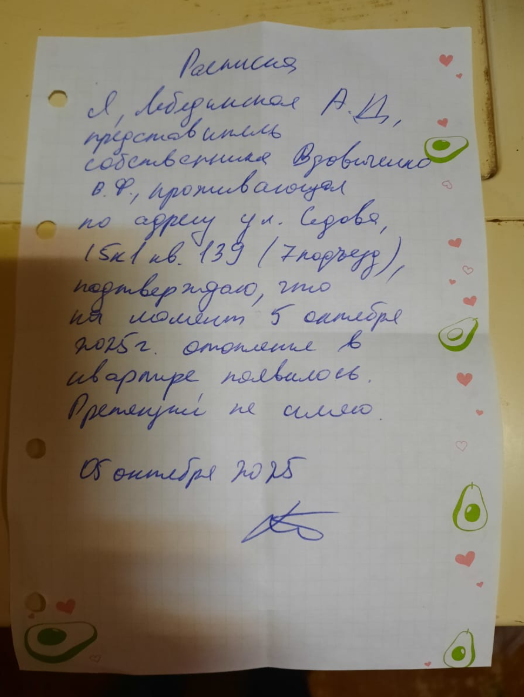 Расписка
Я, Лебединская А.Д,
представитель
собственника Вдовиченко
В.Ф., проживающая
по адресу ул. Седова,
15к1 кв. 139 (7 подъезд),
подтверждаю, что
на момент 5 октября
2025г. отопление в
квартире появилось.
Претензий не имею.
05 октября 2025